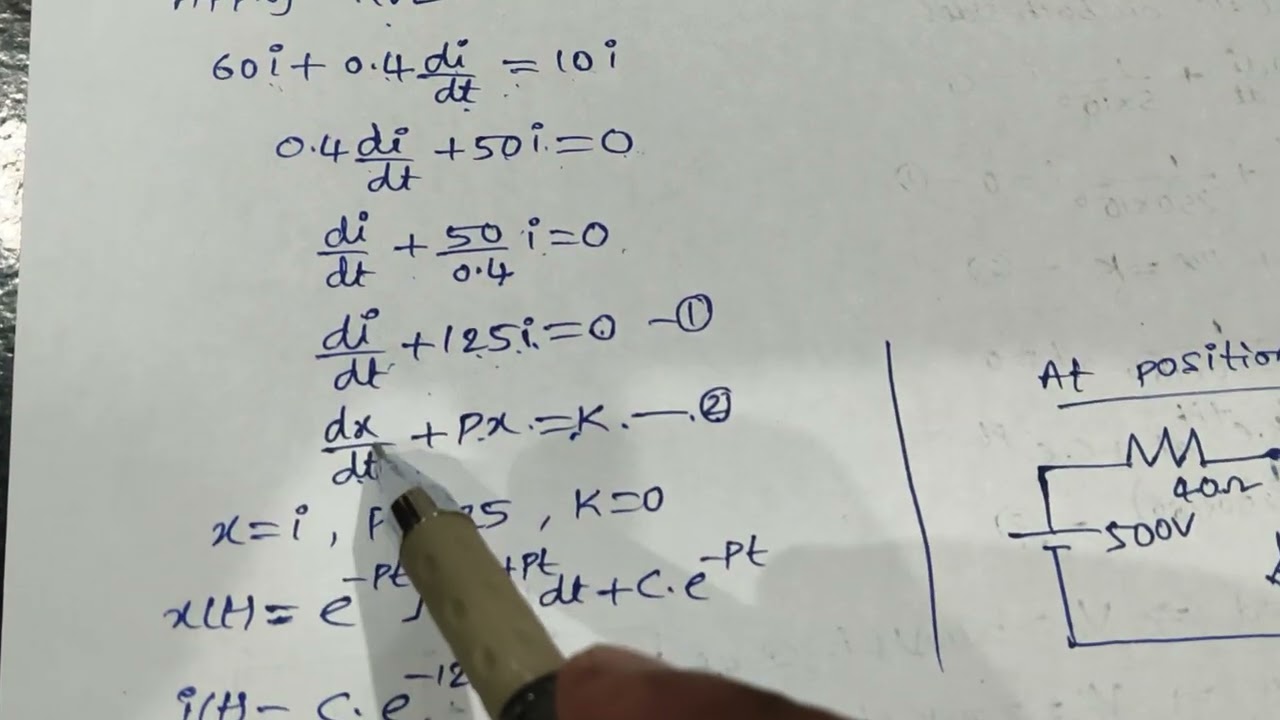 60i + 0.4 di/dt = 10i
0.4 di/dt + 50i = 0
di/dt + 50/0.4 i = 0
di/dt + 125i = 0 — ①
dx/dt + Px = K. — ②
x = i, P 25, K = 0
x(t) = e^-Pt ∫ +Pt dt + C.e^-Pt
i(t) = C.e^-12
At position
40Ω
500V